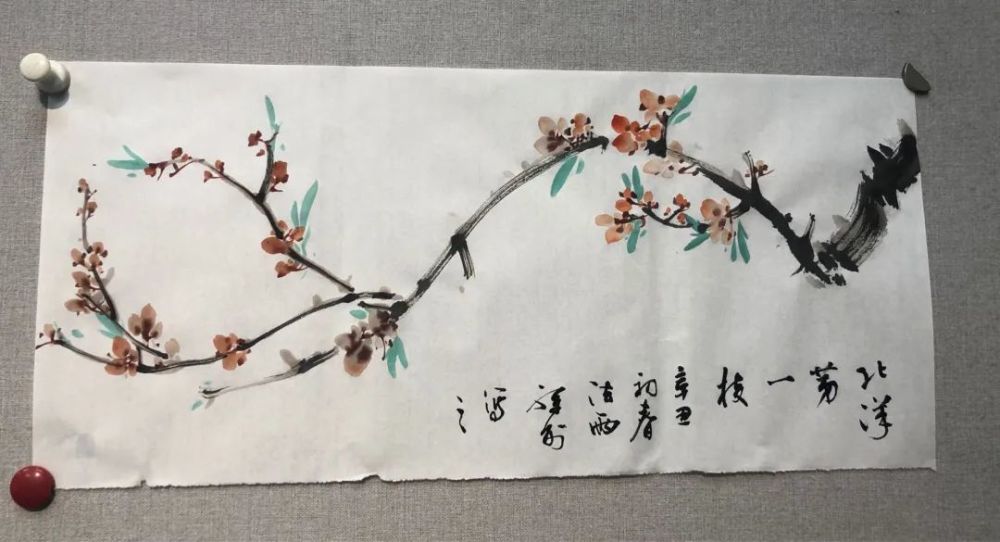 北洋
第
一
枝
辛丑
初春
沽雨
写
之